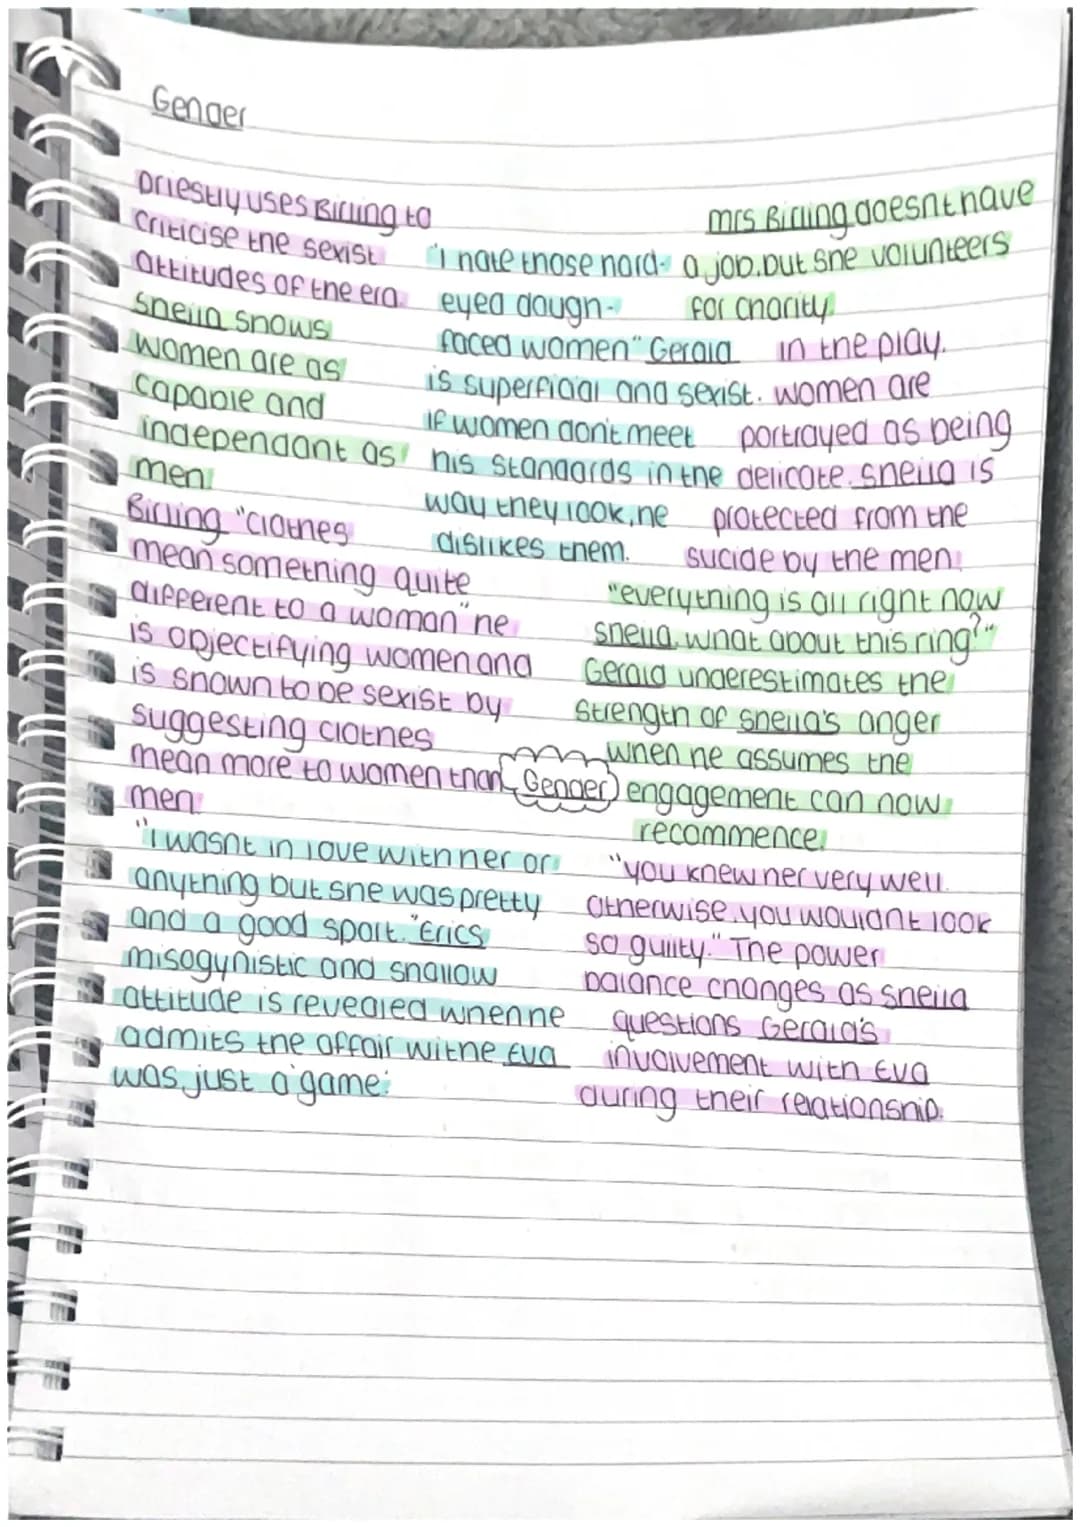 Gender
Priestly uses Birling to
criticise the sexist
attitudes of the era.
Sheila shows
women are as
capable and
independant as
men.
Birling "clothes
mean something quite
different to a woman" he
is objectifying women and
is shown to be sexist by
suggesting clothes
mean more to women than
men.
"I wasnt in love with her or
anything but she was pretty
and a good sport." Erics
misogynistic and shallow
attitude is revealed when he
admits the affair withe Eva
was just a game.
"I hate those hard-
eyed dough-
faced women" Gerald
is superficial and sexist.
If women don't meet
his standards in the
way they look, he
dislikes them.
Mrs Birling doesnt have
a job. but she volunteers
for charity.
in the play.
women are
portrayed as being
delicate. Sheila is
protected from the
sucide by the men.
"everything is all right now
Sheila. what about this ring?"
Gerald underestimates the
strength of Sheila's anger
when he assumes the
engagement can now
recommence.
Gender
"you knew her very well.
otherwise. you wouldnt look
so guilty." The power
balance changes as Sheila
questions Gerald's
involvement with Eva
during their relationship.